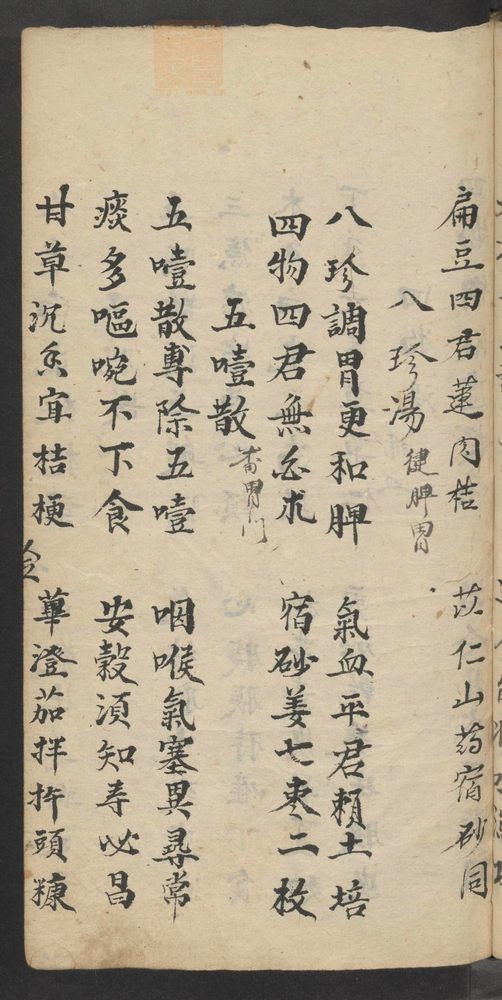 扁豆四君蓮肉桔 苡仁山药宿砂同
八珍湯 健脾胃
八珍調胃更和脾 氣血平君賴土培
四物四君無必求 宿砂姜七枣二枚
五噎散 胃门
五噎散專除五噎 咽喉氣塞異尋常
痰多嘔啘不下食 安穀須知寿必昌
甘草沉香宜桔梗 蓽澄茄拌杵頭糠